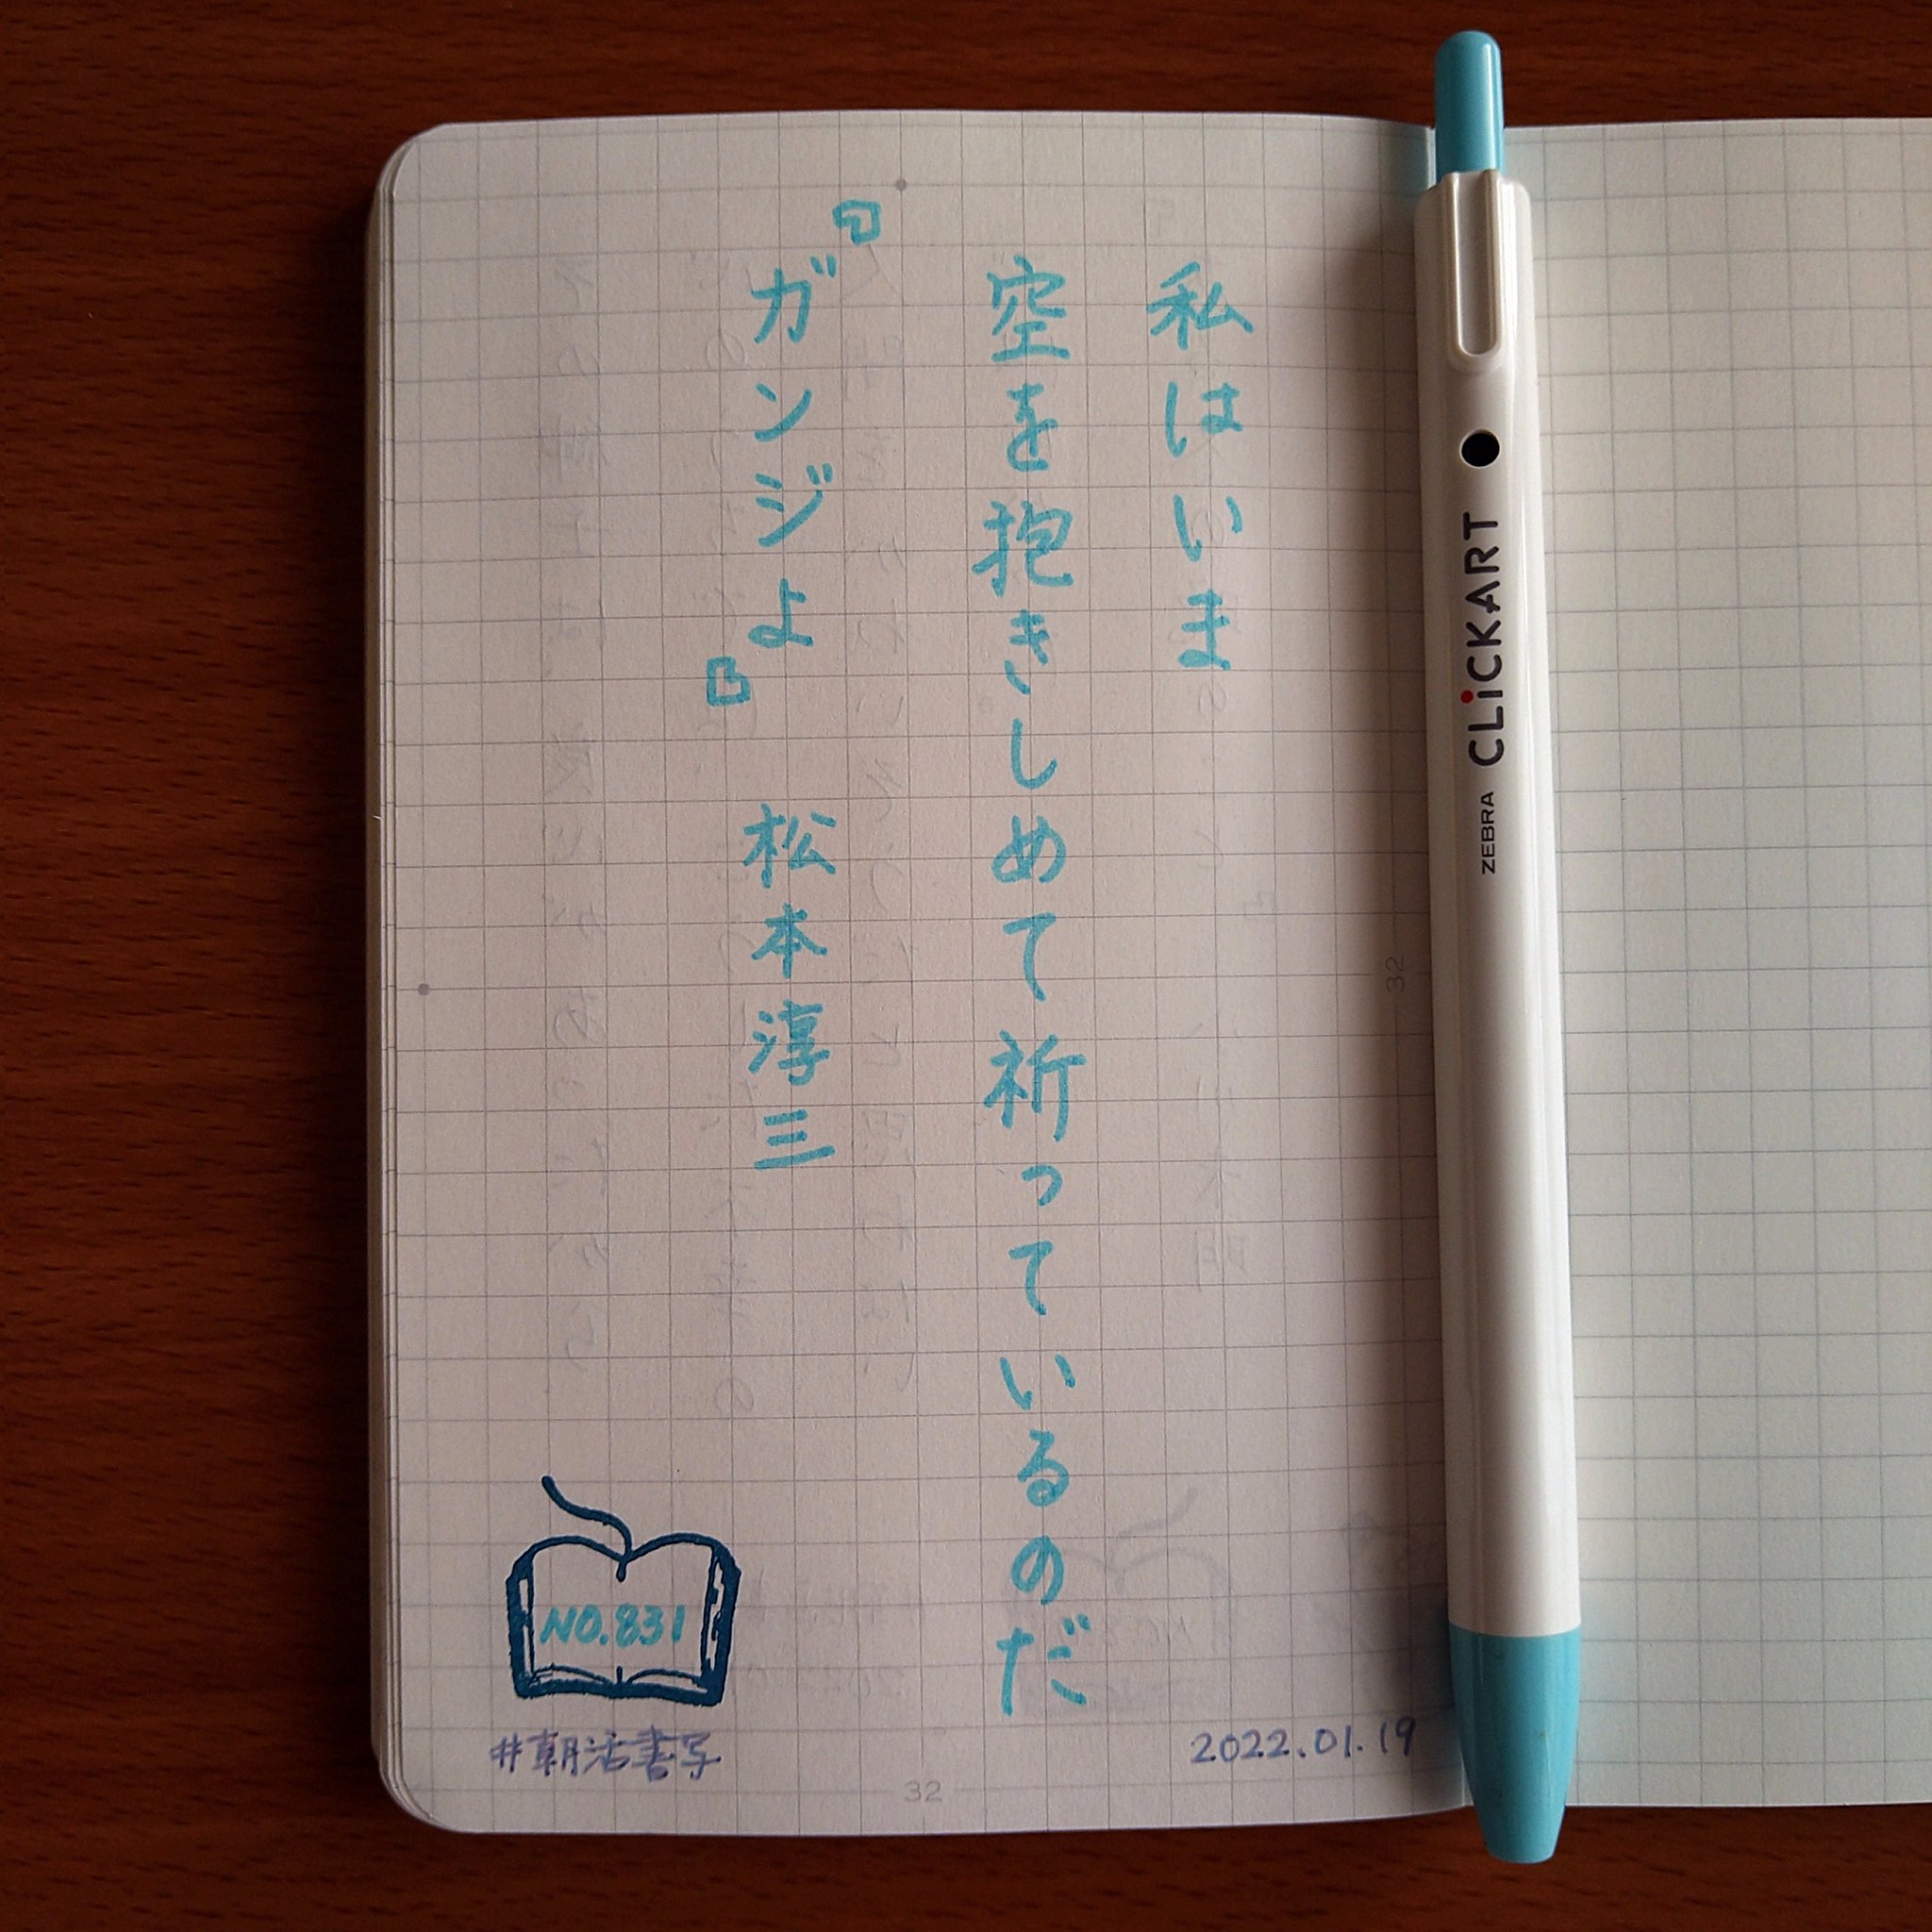 私はいま
空を抱きしめて祈っているのだ
『ガンジよ』 松本淳三
NO.831
#朝活書写
2022.01.19
32
32
ZEBRA CLiCKART